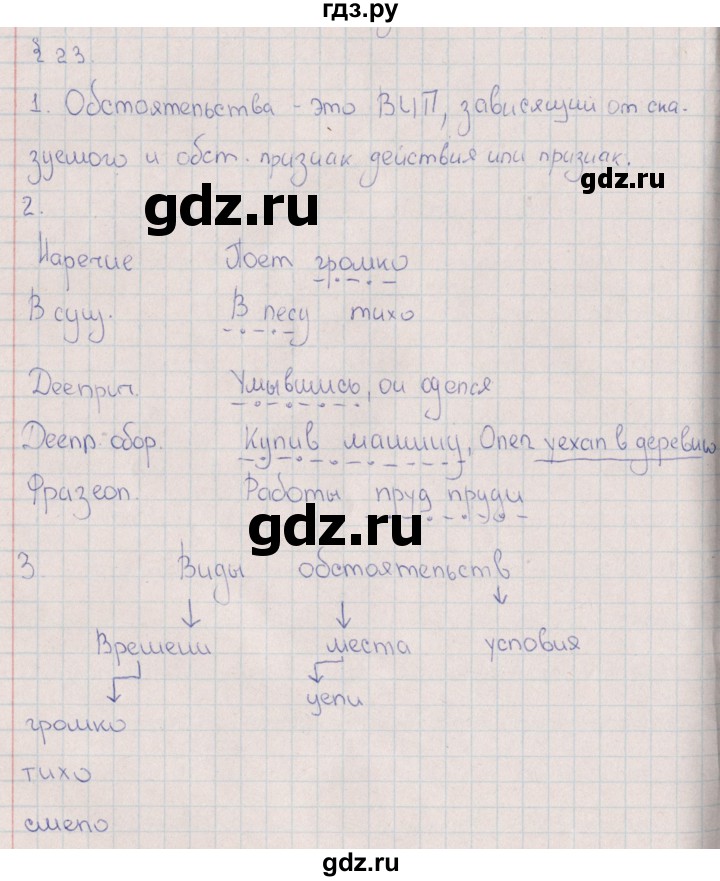 гдз.ру
§ 23.
1. Обстоятельства - это ВЧП, зависящий от ска-
зуемого и обст. признак действия или признак.
gdz.ru
gdz.ru
2.
Наречие Поет громко
В сущ. В лесу тихо
Дееприч. Умывшись, он оделся
Деепр. обор. Купив машину, Олег уехал в деревню
Фразеол. Работы пруд пруди
gdz.ru
3. Виды обстоятельств
Времени места условия
цели
громко
тихо
смело
gdz.ru